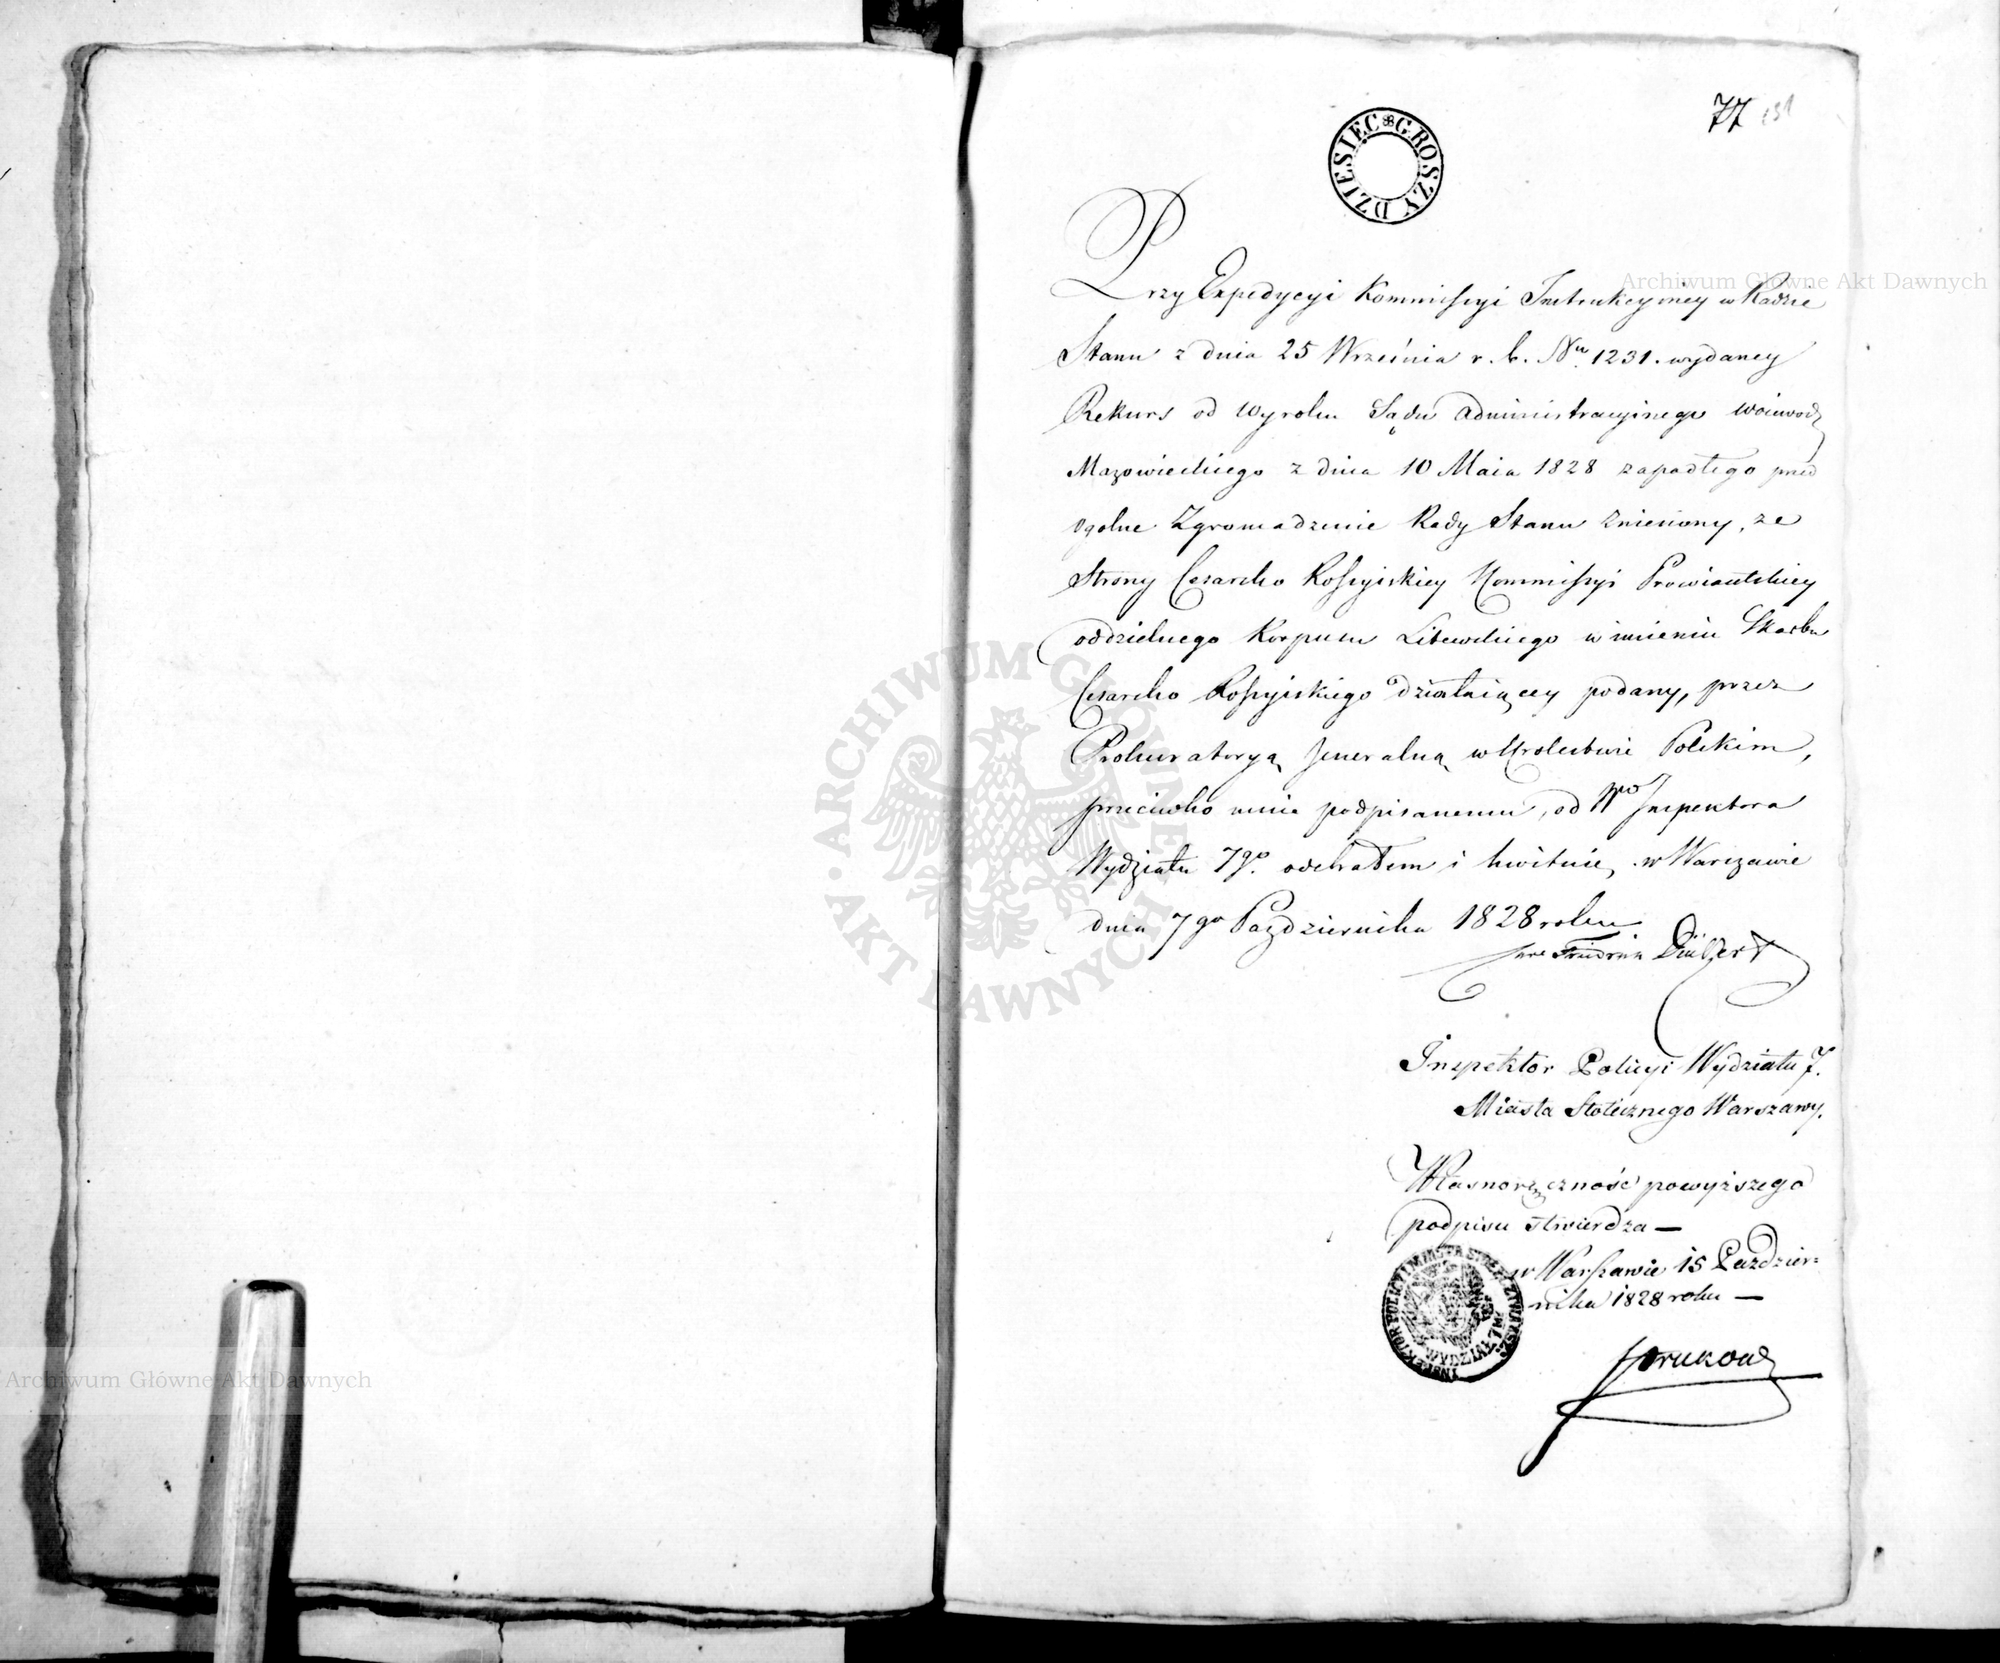 77 151
DZIESIEC GROSZY
Przy Expedycyi Kommissyi Instrukcyiney w Radzie
Stanu z dnia 25 Września r. b. Nro 1231. wydaney
Rekurs od Wyroku Sądu Administracyinego Woiewodz
Mazowieckiego z dnia 10 Maia 1828 zapadłego przed
Ogolne Zgromadzenie Rady Stanu zniesiony, ze
Strony Cesarsko Rossyiskiey Kommissyi Prowiantskiey
oddzielnego Korpusu Litewskiego w imieniu Skarbu
Cesarsko Rossyiskiego działaiącey podany, przez
Prokuratoryą Jeneralną w Krolestwie Polskim,
przeciwko mnie podpisanemu, od Wgo Inspektora
Wydziału 7go. odebrałem i kwituię w Warszawie
dnia 7go Października 1828 roku
Inspektor Policyi Wydziału 7.
Miasta Stołecznego Warszawy.
Własnoręczność powyższego
podpisu stwierdza —
w Warszawie 15 Paździer=
nika 1828 roku —
INSPEKTOR POLICYI MIASTA
WYDZIAŁ
ARCHIWUM GŁÓWNE AKT DAWNYCH
Archiwum Główne Akt Dawnych
Archiwum Główne Akt Dawnych